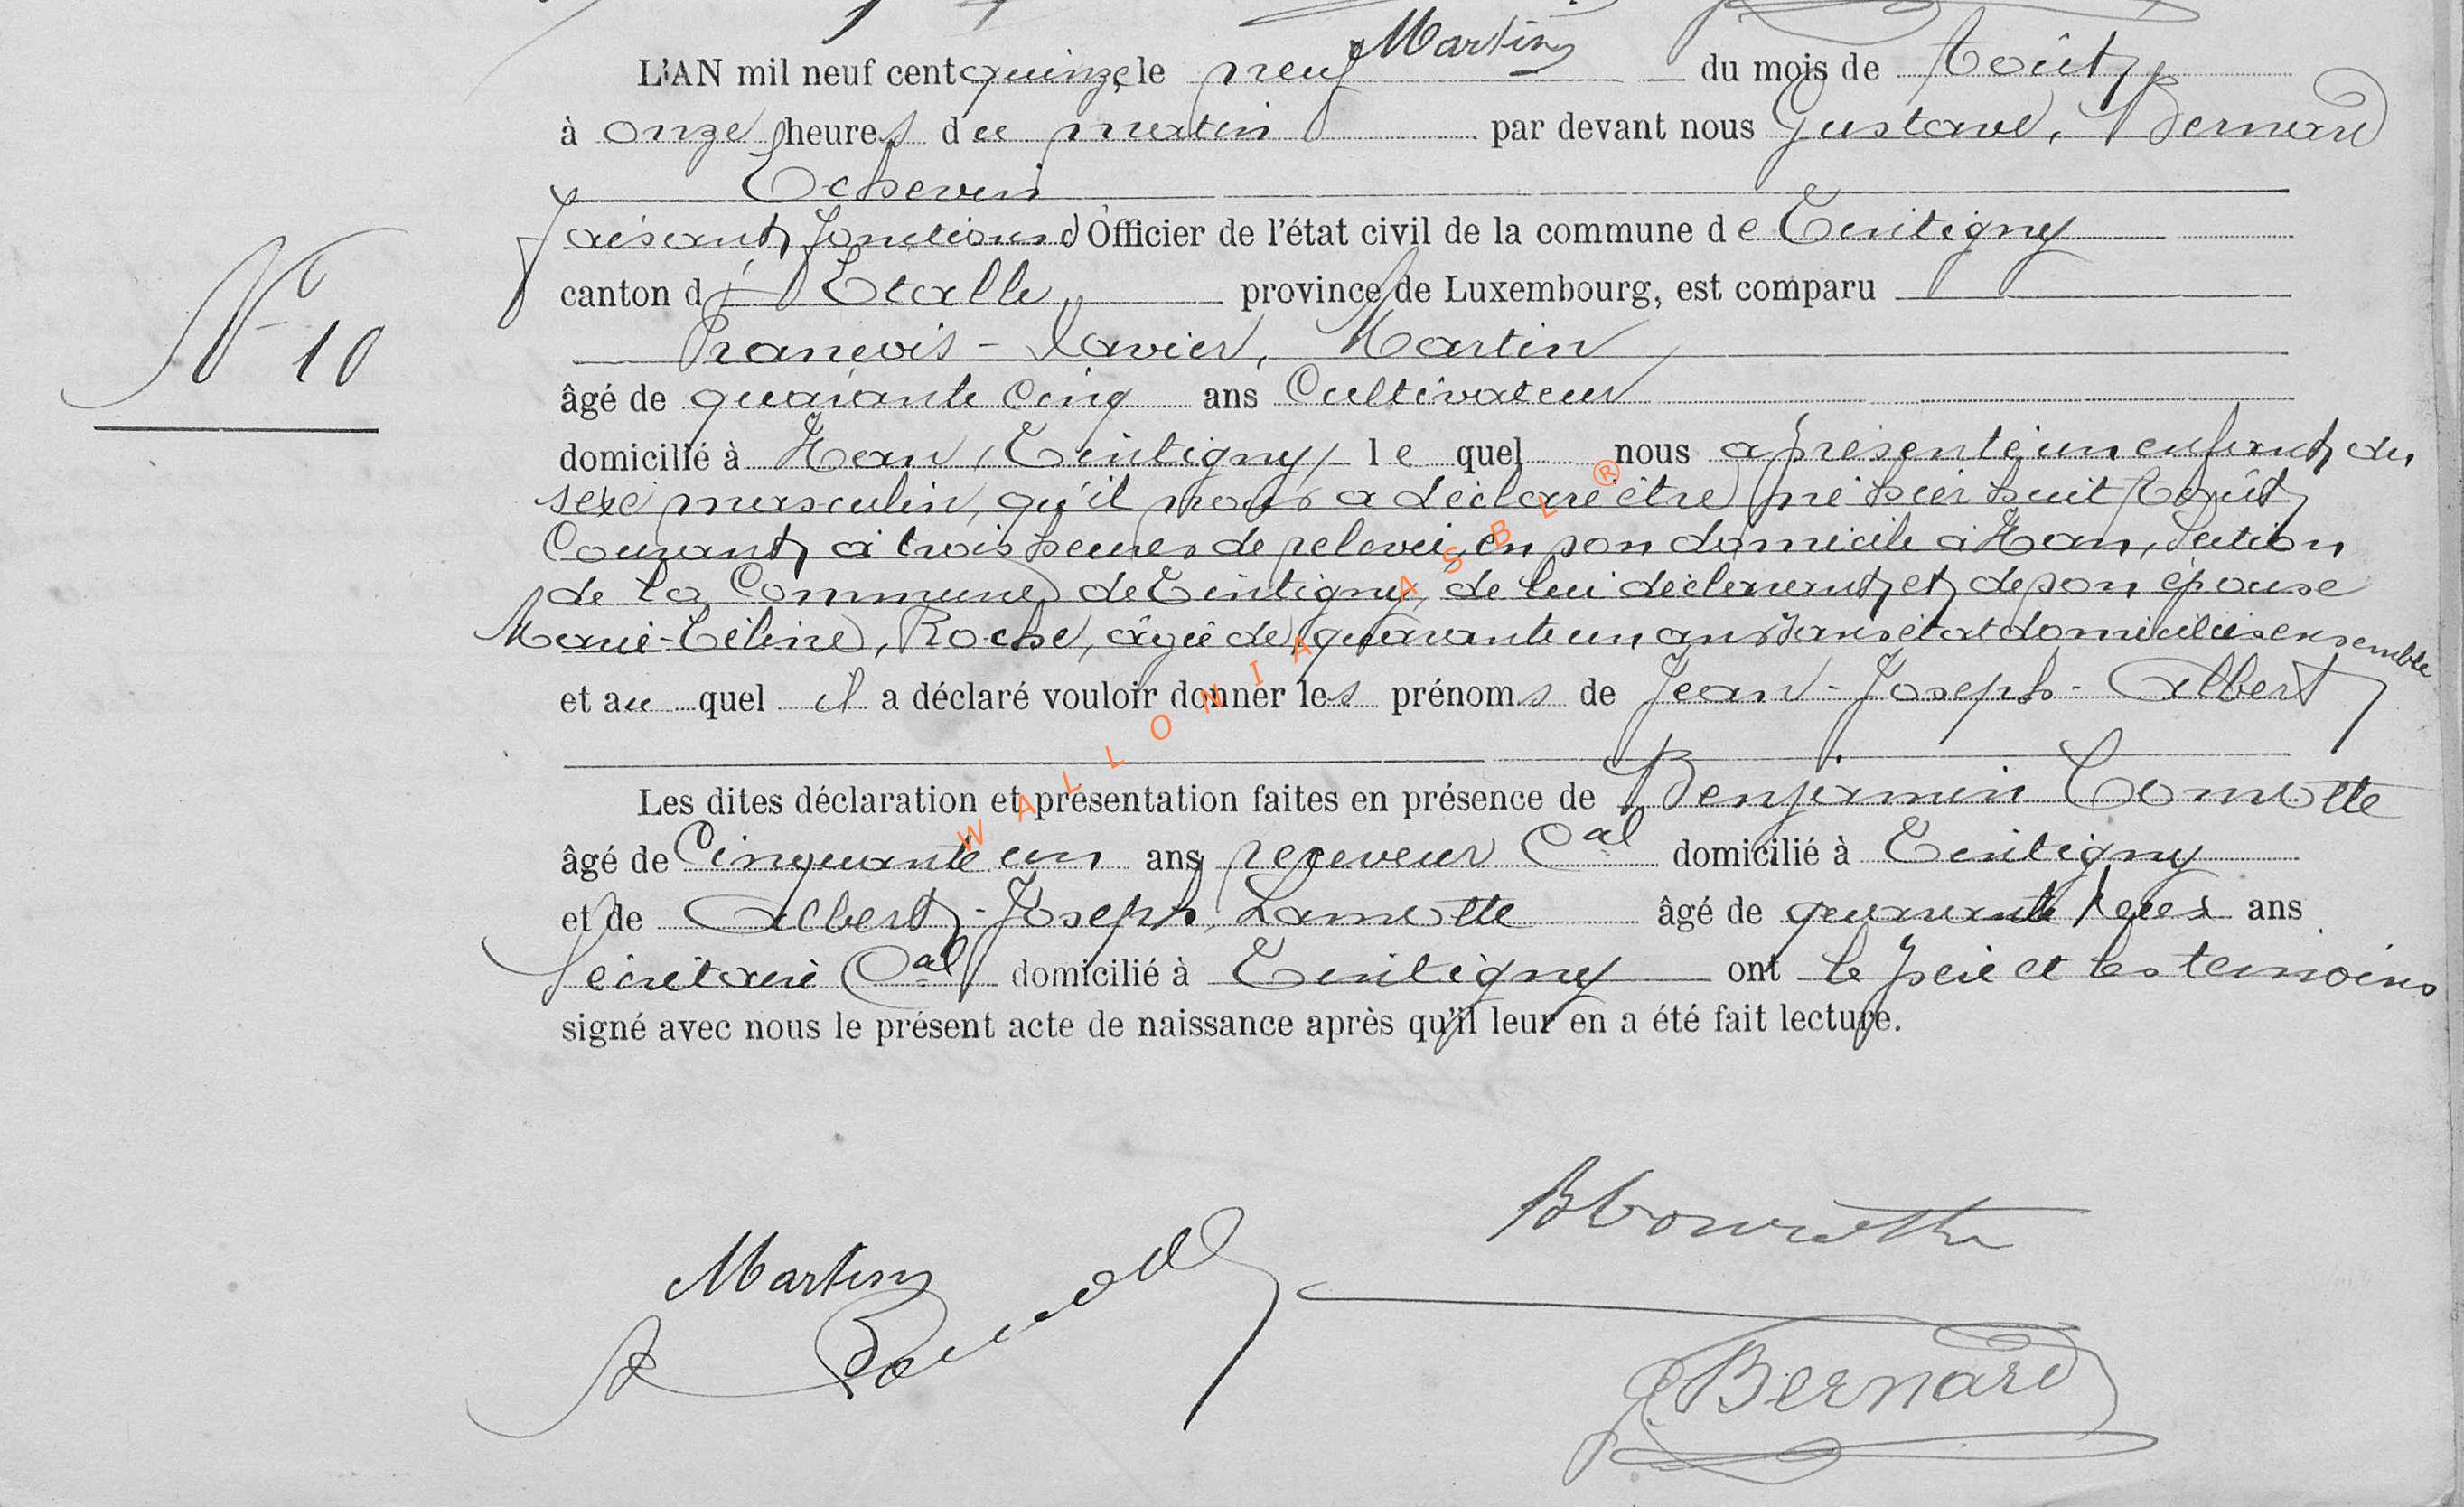 Martin
L'AN mil neuf cent quinze, le neuf du mois de Août
à onze heures du matin par devant nous Gustave, Bernard
Echevin
faisant fonctions d'Officier de l'état civil de la commune de Tintigny
canton d'Etalle province de Luxembourg, est comparu
François-Xavier, Martin
N° 10
âgé de quarante cinq ans Cultivateur
domicilié à Han (Tintigny) le quel nous a présenté un enfant du
sexe masculin, qu'il nous a déclaré être né hier huit Août
Courant à trois heures de relevée, en son domicile à Han, Section
de la Commune de Tintigny, de lui déclarant et de son épouse
Marie-Céline, Roche, âgée de quarante un ans sans état domiciliés ensemble
et au quel il a déclaré vouloir donner les prénoms de Jean-Joseph-Albert
Les dites déclaration et présentation faites en présence de Benjamin
âgé de Cinquante un ans receveur Cal domicilié à Tintigny
et de Albert-Joseph, Lamotte âgé de quarante ans
Secrétaire Cal domicilié à Tintigny ont le père et les témoins
signé avec nous le présent acte de naissance après qu'il leur en a été fait lecture.
Martin
G Bernard
WALLONIA ASBL ®